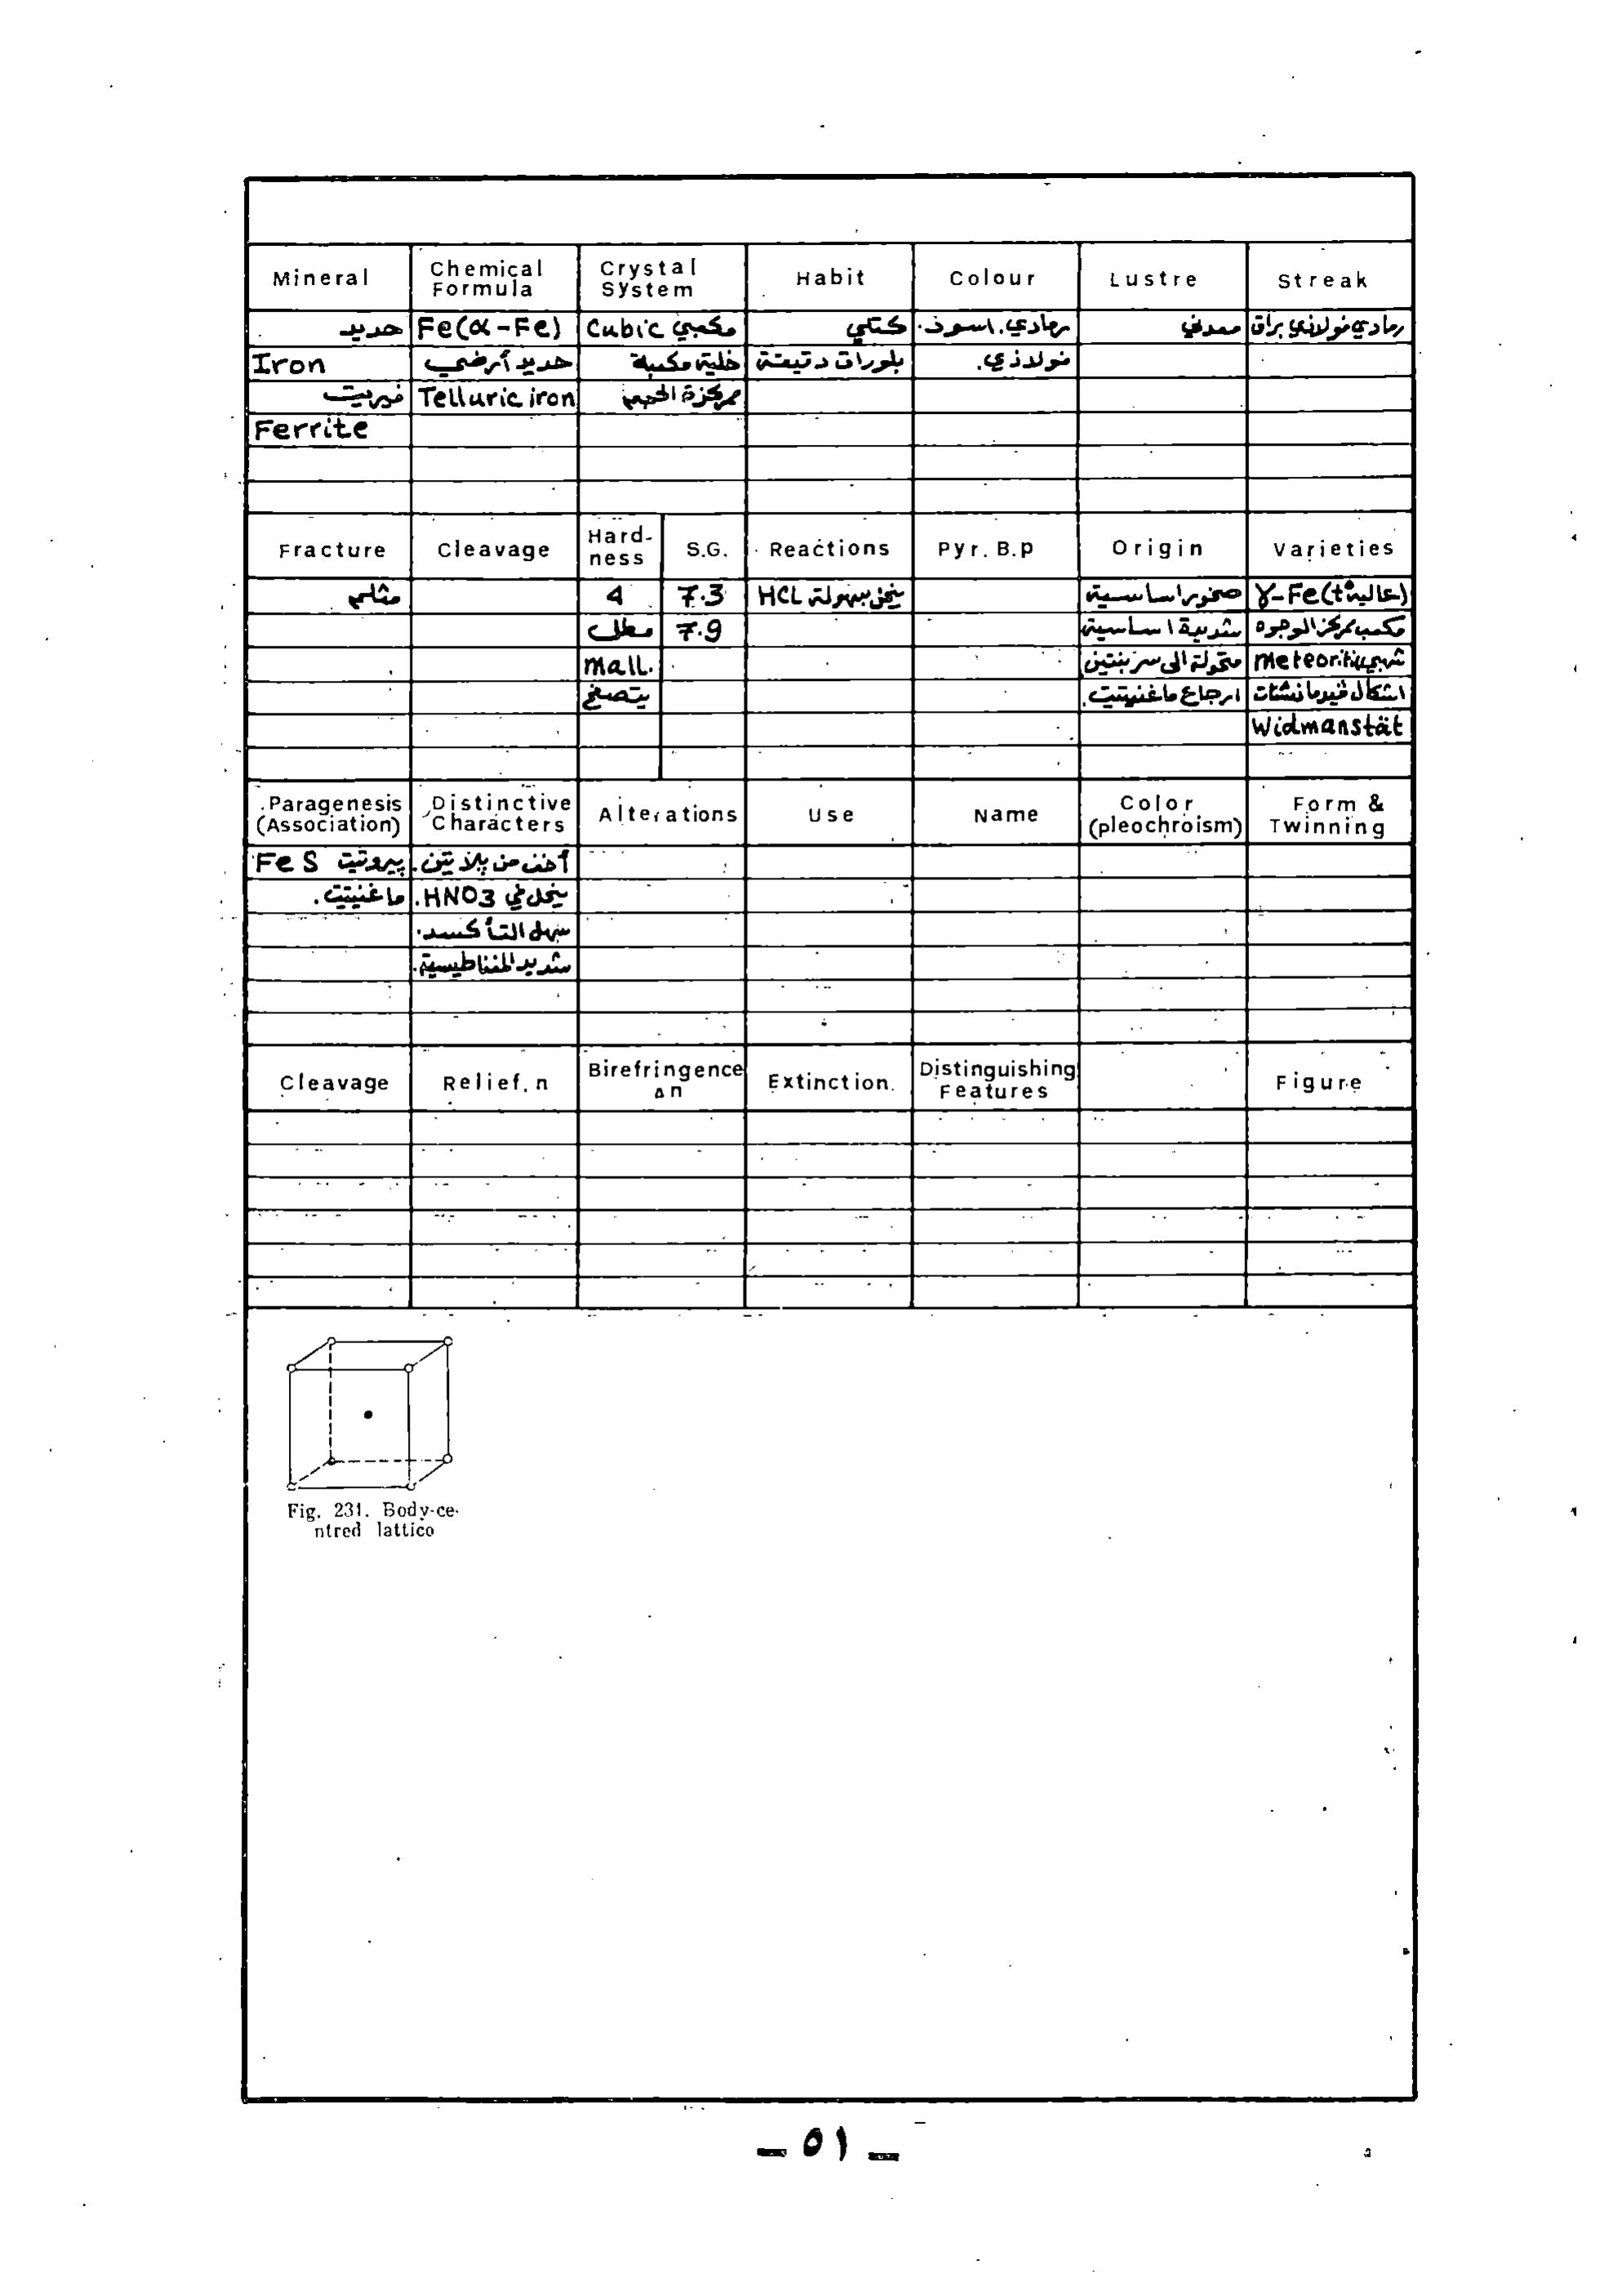 Mineral Chemical Formula Crystal System Habit Colour Lustre Streak
حديد Fe(α-Fe) Cubic مكعبي كتلي رمادي. اسود. معدني رمادي فولاذي براق
Iron حديد أرضي خلية مكعبة بلورات دقيقة فولاذي.
فيريت Telluric iron ممركزة الحجم
Ferrite
Fracture Cleavage Hard-ness S.G. Reactions Pyr. B.p Origin Varieties
مثلم 4 7.3 ينحل بسهولة HCL صخور اساسية γ-Fe(t° عالية)
7.9 شديدة اساسية مكعب ممركز الوجوه
mall. متحولة الى سربنتين meteoritic شهبي
يتصفح ارجاع ماغنيتيت. اشكال فيدمانشتات
Widmanstät
Paragenesis (Association) Distinctive Characters Alterations Use Name Color (pleochroism) Form & Twinning
بيروتيت FeS أخف من بلاتين.
ماغنيتيت. ينحل في HNO3.
سهل التأكسد.
شديد المغناطيسية.
Cleavage Relief. n Birefringence Δn Extinction. Distinguishing Features Figure
Fig. 231. Body-ce-
ntred lattico
– ٥١ –